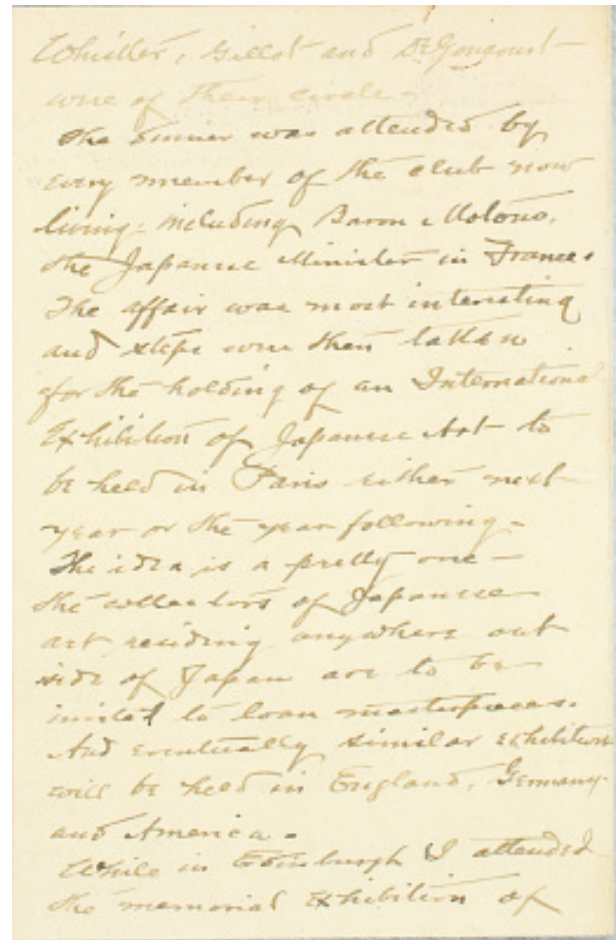 Whistler, Gillot and De Goncourt
were of their circle.
The dinner was attended by
every member of the club now
living - including Baron Motono,
the Japanese Minister in France.
The affair was most interesting
and steps were then taken
for the holding of an International
Exhibition of Japanese Art to
be held in Paris either next
year or the year following.
The idea is a pretty one -
the collectors of Japanese
art residing anywhere out
side of Japan are to be
invited to loan masterpieces.
And eventually similar exhibitions
will be held in England, Germany
and America.
While in Edinburgh I attended
the memorial exhibition of